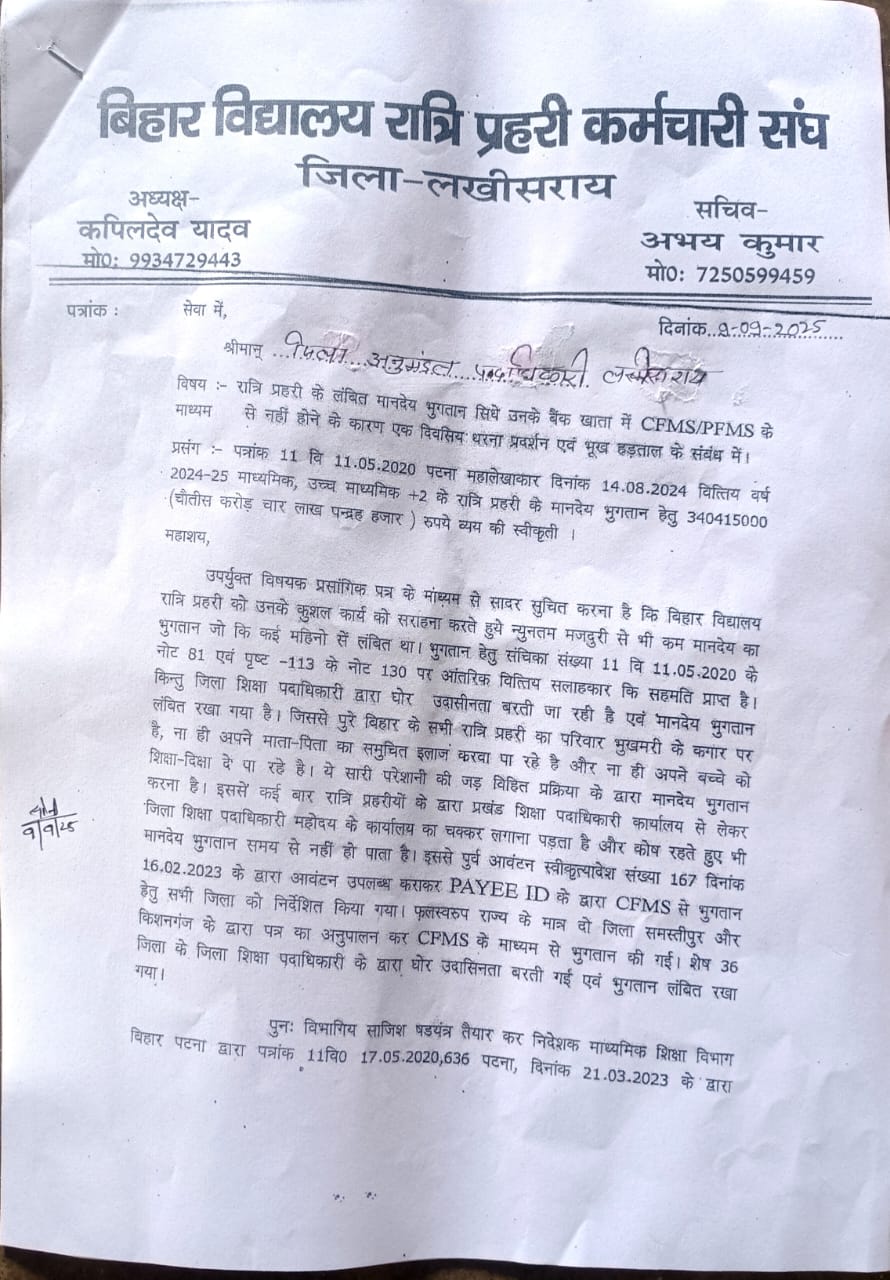 बिहार विद्यालय रात्रि प्रहरी कर्मचारी संघ
जिला-लखीसराय
अध्यक्ष-
कपिलदेव यादव
मो0: 9934729443
सचिव-
अभय कुमार
मो0: 7250599459
पत्रांक :
सेवा में,
दिनांक..9-09-2025
श्रीमान् ... अनुमंडल पदाधिकारी लखीसराय
विषय :- रात्रि प्रहरी के लंबित मानदेय भुगतान सिधे उनके बैंक खाता में CFMS/PFMS के
माध्यम से नहीं होने के कारण एक दिवसिय धरना प्रदर्शन एवं भूख हड़ताल के संबंध में।
प्रसंग :- पत्रांक 11 वि 11.05.2020 पटना महालेखाकार दिनांक 14.08.2024 वित्तिय वर्ष
2024-25 माध्यमिक, उच्च माध्यमिक +2 के रात्रि प्रहरी के मानदेय भुगतान हेतु 340415000
(चौतीस करोड़ चार लाख पन्द्रह हजार ) रुपये व्यय की स्वीकृती ।
महाशय,
उपर्युक्त विषयक प्रसांगिक पत्र के माध्यम से सादर सुचित करना है कि बिहार विद्यालय
रात्रि प्रहरी को उनके कुशल कार्य को सराहना करते हुये न्युनतम मजदुरी से भी कम मानदेय का
भुगतान जो कि कई महिनो सें लंबित था। भुगतान हेतु संचिका संख्या 11 वि 11.05.2020 के
नोट 81 एवं पृष्ट -113 के नोट 130 पर आंतरिक वित्तिय सलाहकार कि सहमति प्राप्त है।
किन्तु जिला शिक्षा पदाधिकारी द्वारा घोर उदासीनता बरती जा रही है एवं मानदेय भुगतान
लंबित रखा गया है। जिससे पुरे बिहार के सभी रात्रि प्रहरी का परिवार भुखमरी के कगार पर
है, ना ही अपने माता-पिता का समुचित इलाज करवा पा रहे है और ना ही अपने बच्चे को
शिक्षा-दिक्षा दे पा रहे है। ये सारी परेशानी की जड़ विहित प्रक्रिया के द्वारा मानदेय भुगतान
करना है। इससें कई बार रात्रि प्रहरीयों के द्वारा प्रखंड शिक्षा पदाधिकारी कार्यालय से लेकर
जिला शिक्षा पदाधिकारी महोदय के कार्यालय का चक्कर लगाना पड़ता है और कोष रहते हुए भी
मानदेय भुगतान समय से नहीं हो पाता है। इससे पुर्व आवंटन स्वीकृत्यादेश संख्या 167 दिनांक
16.02.2023 के द्वारा आवंटन उपलब्ध कराकर PAYEE ID के द्वारा CFMS से भुगतान
हेतु सभी जिला को निर्देशित किया गया। फलस्वरुप राज्य के मात्र दो जिला समस्तीपुर और
किशनगंज के द्वारा पत्र का अनुपालन कर CFMS के माध्यम से भुगतान की गई। शेष 36
जिला के जिला शिक्षा पदाधिकारी के द्वारा घोर उदासिनता बरती गई एवं भुगतान लंबित रखा
गया।
9/9/25
पुनः विभागिय साजिश षडयंत्र तैयार कर निदेशक माध्यमिक शिक्षा विभाग
बिहार पटना द्वारा पत्रांक 11वि0 17.05.2020,636 पटना, दिनांक 21.03.2023 के द्वारा